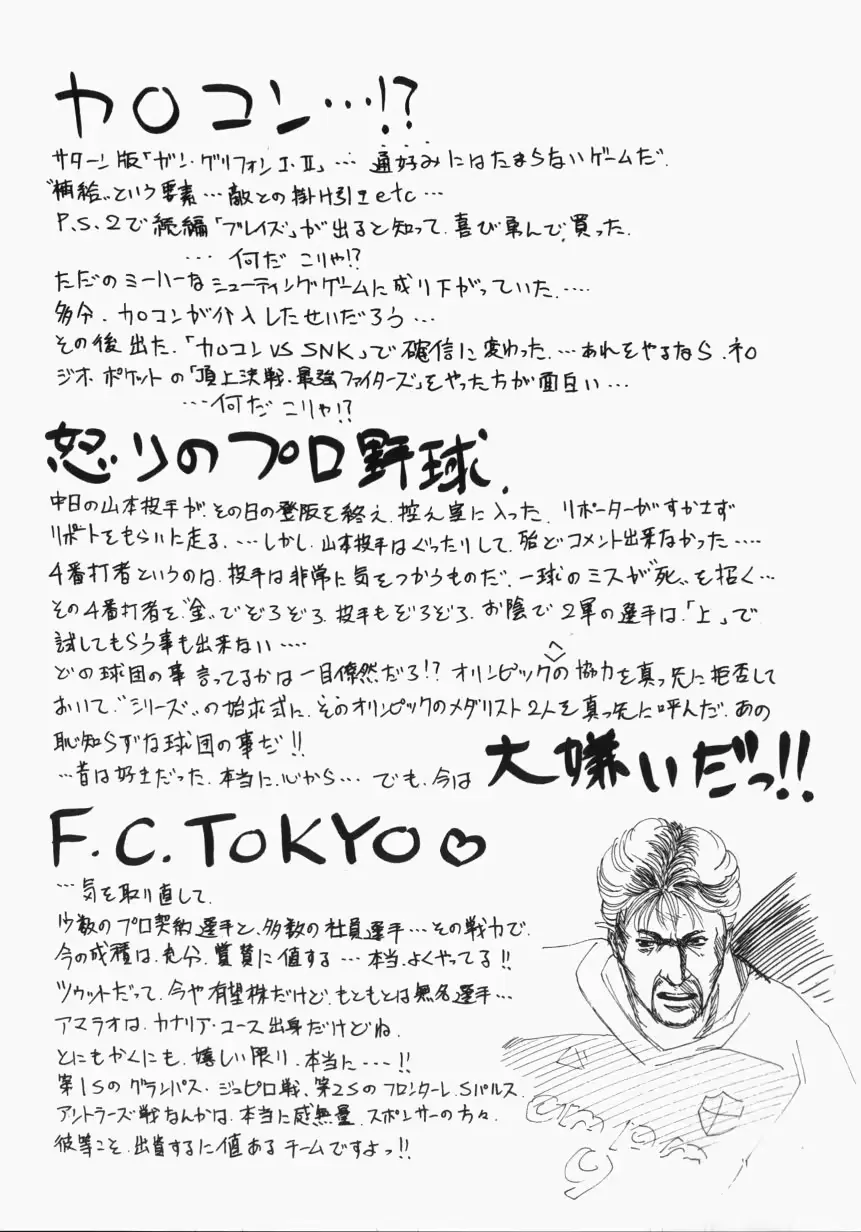 カロコン…!?
サターン版「ガン・グリフォンⅠ・Ⅱ」… 通好みにはたまらないゲームだ.
"補給"という要素…敵との掛け引きetc…
P.S.2で続編「ブレイズ」が出ると知って.喜び勇んで.買った.
…何だ こりゃ!?
ただのミーハーなシューティングゲームに成り下がっていた.…
多分.カロコンが介入したせいだろう…
その後出た.「カロコンVS SNK」で確信に変わった.…あれをやるなら.ネO
ジオ.ポケットの「頂上決戦.最強ファイターズ」をやった方が面白い…
…何だ こりゃ!?
怒りのプロ野球.
中日の山本投手が.その日の登板を終え.控え室に入った.リポーターがすかさず
リポートをもらいに走る.…しかし.山本投手はぐったりして.殆どコメント出来なかった…
4番打者というのは.投手は非常に気をつかうものだ.一球のミスが"死"を招く…
その4番打者を"金"でぞろぞろ.投手もぞろぞろ.お陰で2軍の選手は.「上」で
試してもらう事も出来ない…
どの球団の事 言ってるかは一目僚然だろ!? オリンピックへの協力を真っ先に拒否して
おいて."シリーズ"の始求式に.そのオリンピックのメダリスト2人を真っ先に呼んだ.あの
恥知らずな球団の事だ!!
…昔は好きだった.本当に.心から…でも.今は 大嫌いだっ!!
F.C.TOKYO♡
…気を取り直して.
少数のプロ契約選手と.多数の社員選手…その戦力で.
今の成種は.充分.賞賛に値する…本当.よくやってる!!
ツゥットだって.今や有望株だけど.もともとは無名選手…
アマラオは.カナリア・ユース出身だけどね.
とにもかくにも.嬉しい限り.本当に…!!
第1Sのグランパス.ジュビロ戦、第2Sのフロンターレ.Sパルス.
アントラーズ戦なんかは.本当に感無量.スポンサーの方々.
彼等こそ.出資するに値あるチームですよっ!!